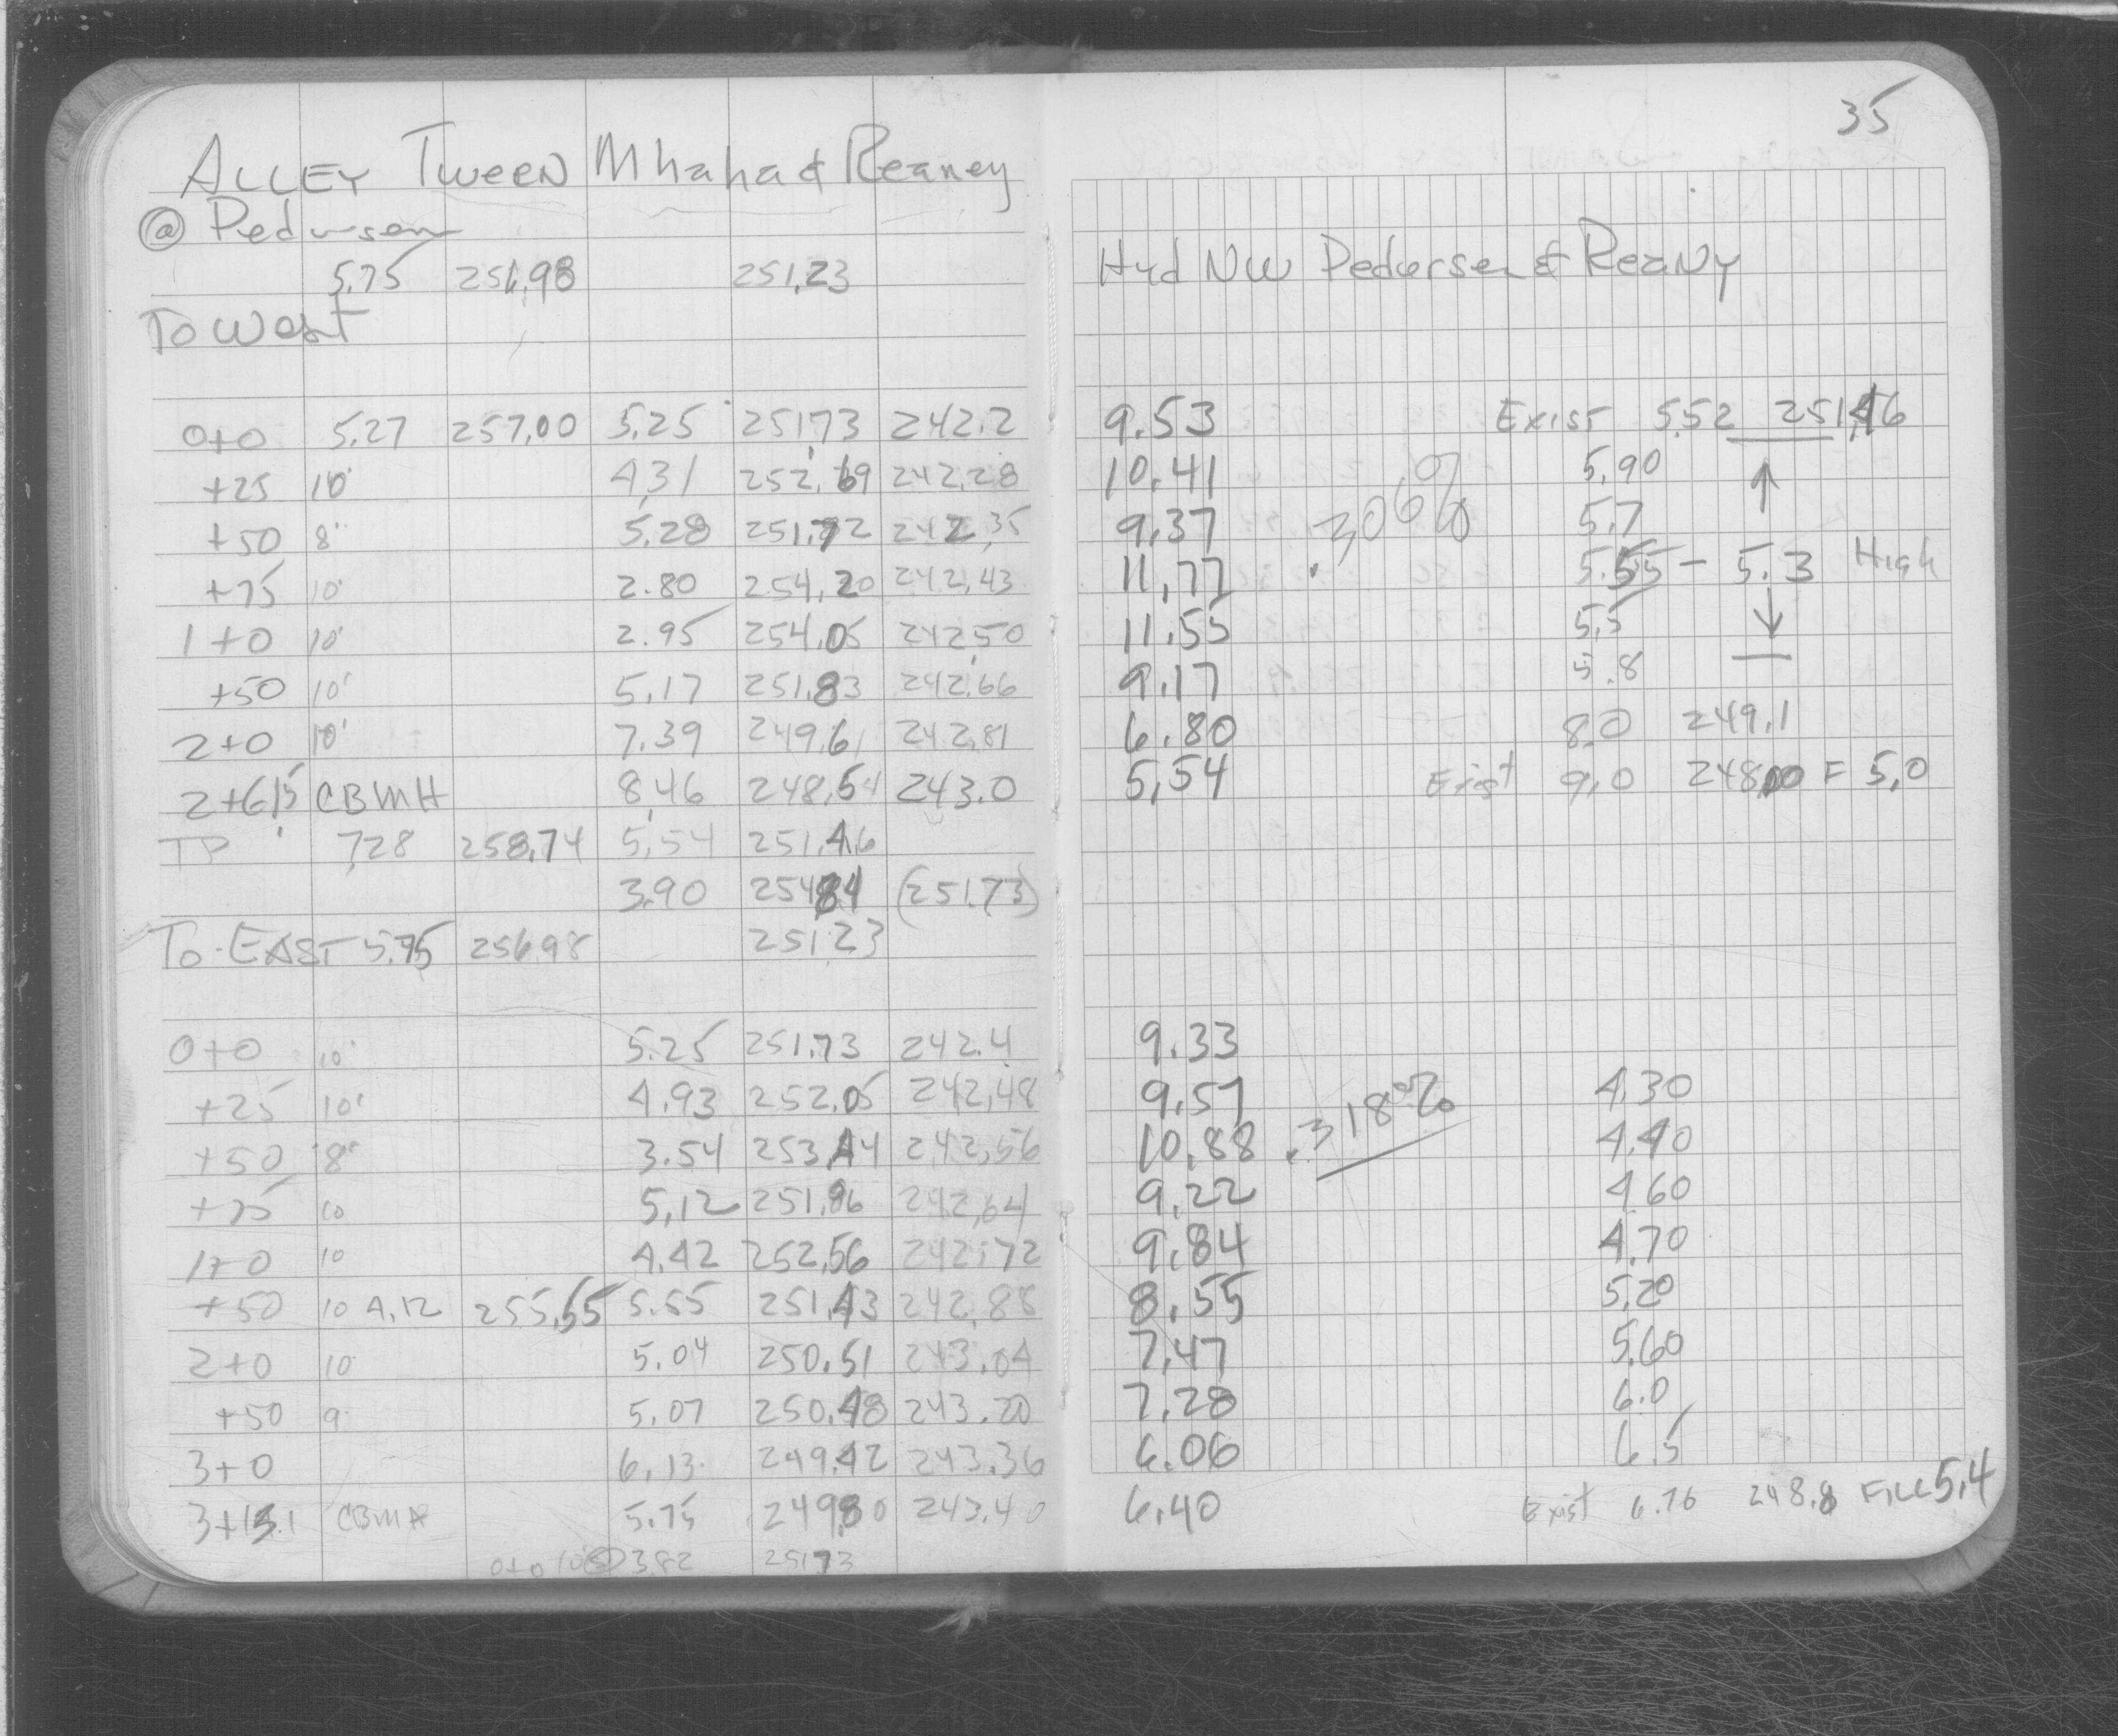 35
ALLEY TWEEN Mhaha & Reaney
@ Pedersen
5.75 256.98 251.23 Hyd NW Pedersen & Reany
To West
0+0 5.27 257.00 5.25 251.73 242.2 9.53 Exist 5.52 251.46
+25 10' 4.31 252.69 242.28 10.41 5.90 ↑
+50 8' 5.28 251.72 242.35 9.37 .306% 5.7
+75 10' 2.80 254.20 242.43 11.77 5.55 - 5.3 High
1+0 10' 2.95 254.05 242.50 11.55 5.5 ↓
+50 10' 5.17 251.83 242.66 9.17 5.8
2+0 10' 7.39 249.61 242.81 6.80 8.0 249.1
2+61.5 CBMH 8.46 248.54 243.0 5.54 Exist 9.0 248.00 F 5.0
TP 7.28 258.74 5.54 251.46
3.90 254.84 (251.73)
To EAST 5.75 256.98 251.23
0+0 10' 5.25 251.73 242.4 9.33
+25 10' 4.93 252.05 242.48 9.57 .318% 4.30
+50 8' 3.54 253.44 242.56 10.88 4.40
+75 10 5.12 251.86 242.64 9.22 4.60
1+0 10 4.42 252.56 242.72 9.84 4.70
+50 10 4.12 255.55 5.55 251.43 242.88 8.55 5.20
2+0 10' 5.04 250.51 243.04 7.47 5.60
+50 9' 5.07 250.48 243.20 7.28 6.0
3+0 6.13 249.42 243.36 6.06 6.5
3+13.1 CBMH 5.75 249.80 243.40 6.40 Exist 6.76 248.8 FILL 5.4
0+0 10'S 3.82 251.73